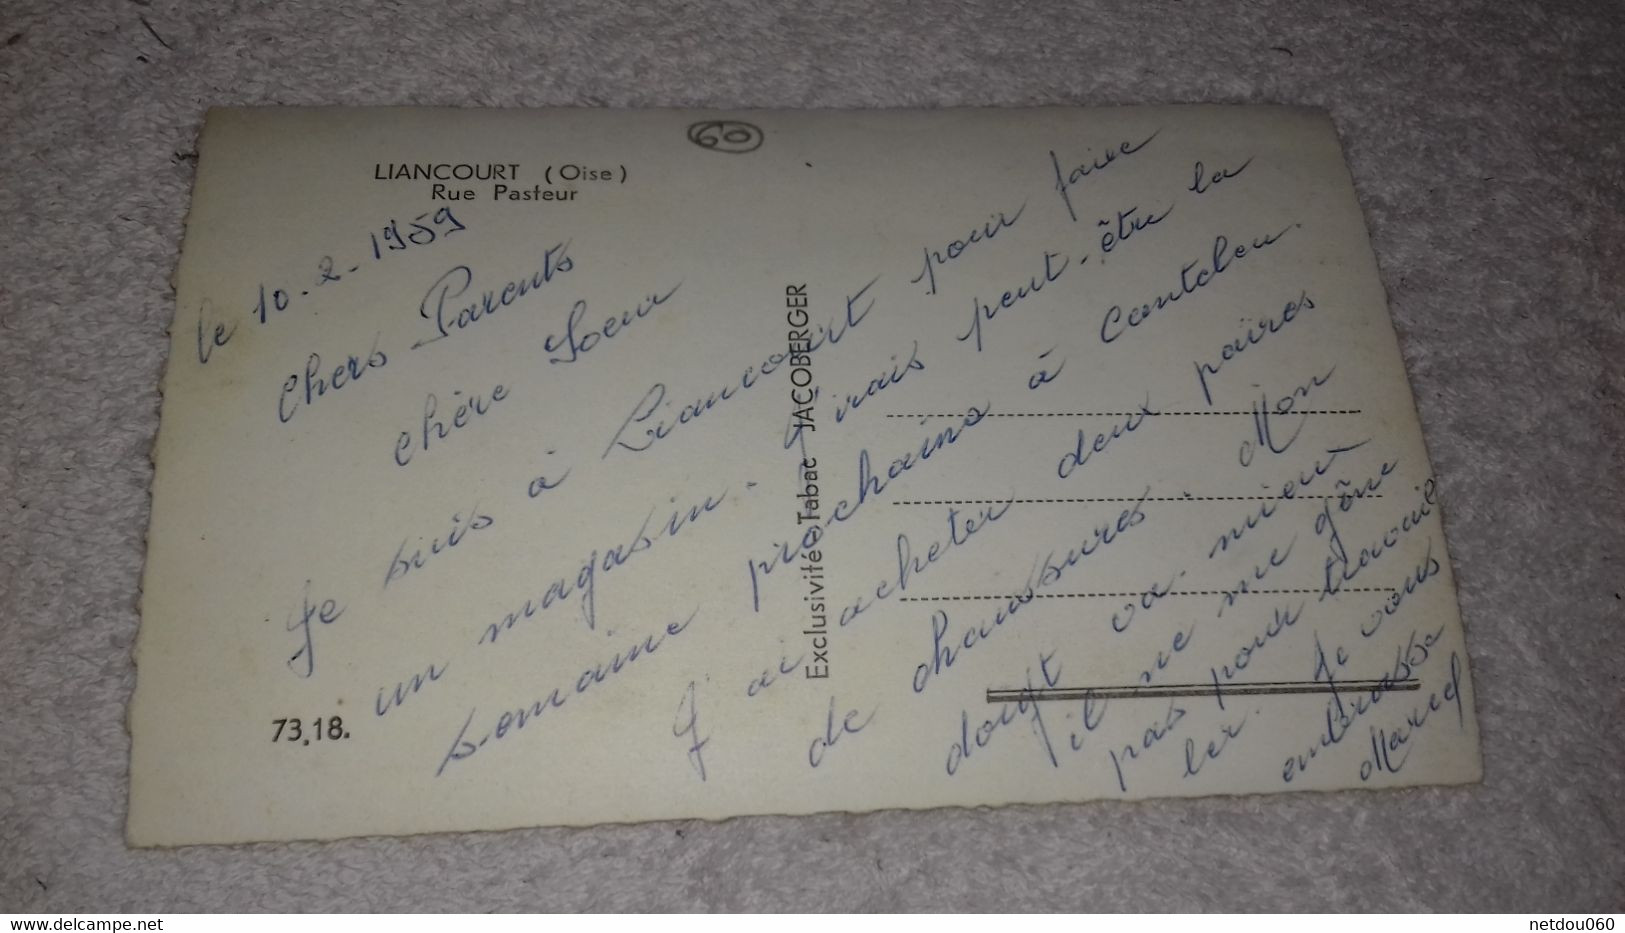 60
LIANCOURT (Oise)
Rue Pasteur
le 10-2-1959
Chers Parents
chère Soeur
Je suis à Liancourt pour faire
un magasin. J'irais peut-être la
semaine prochaine à Canteleu.
J'ai acheter deux paires
de chaussures. Mon
doigt va mieux
il ne me gêne
pas pour travail
ler. Je vous
embrasse
Marcel
Exclusivité - Tabac JACOBERGER
73.18.
delcampe.net
netdou060